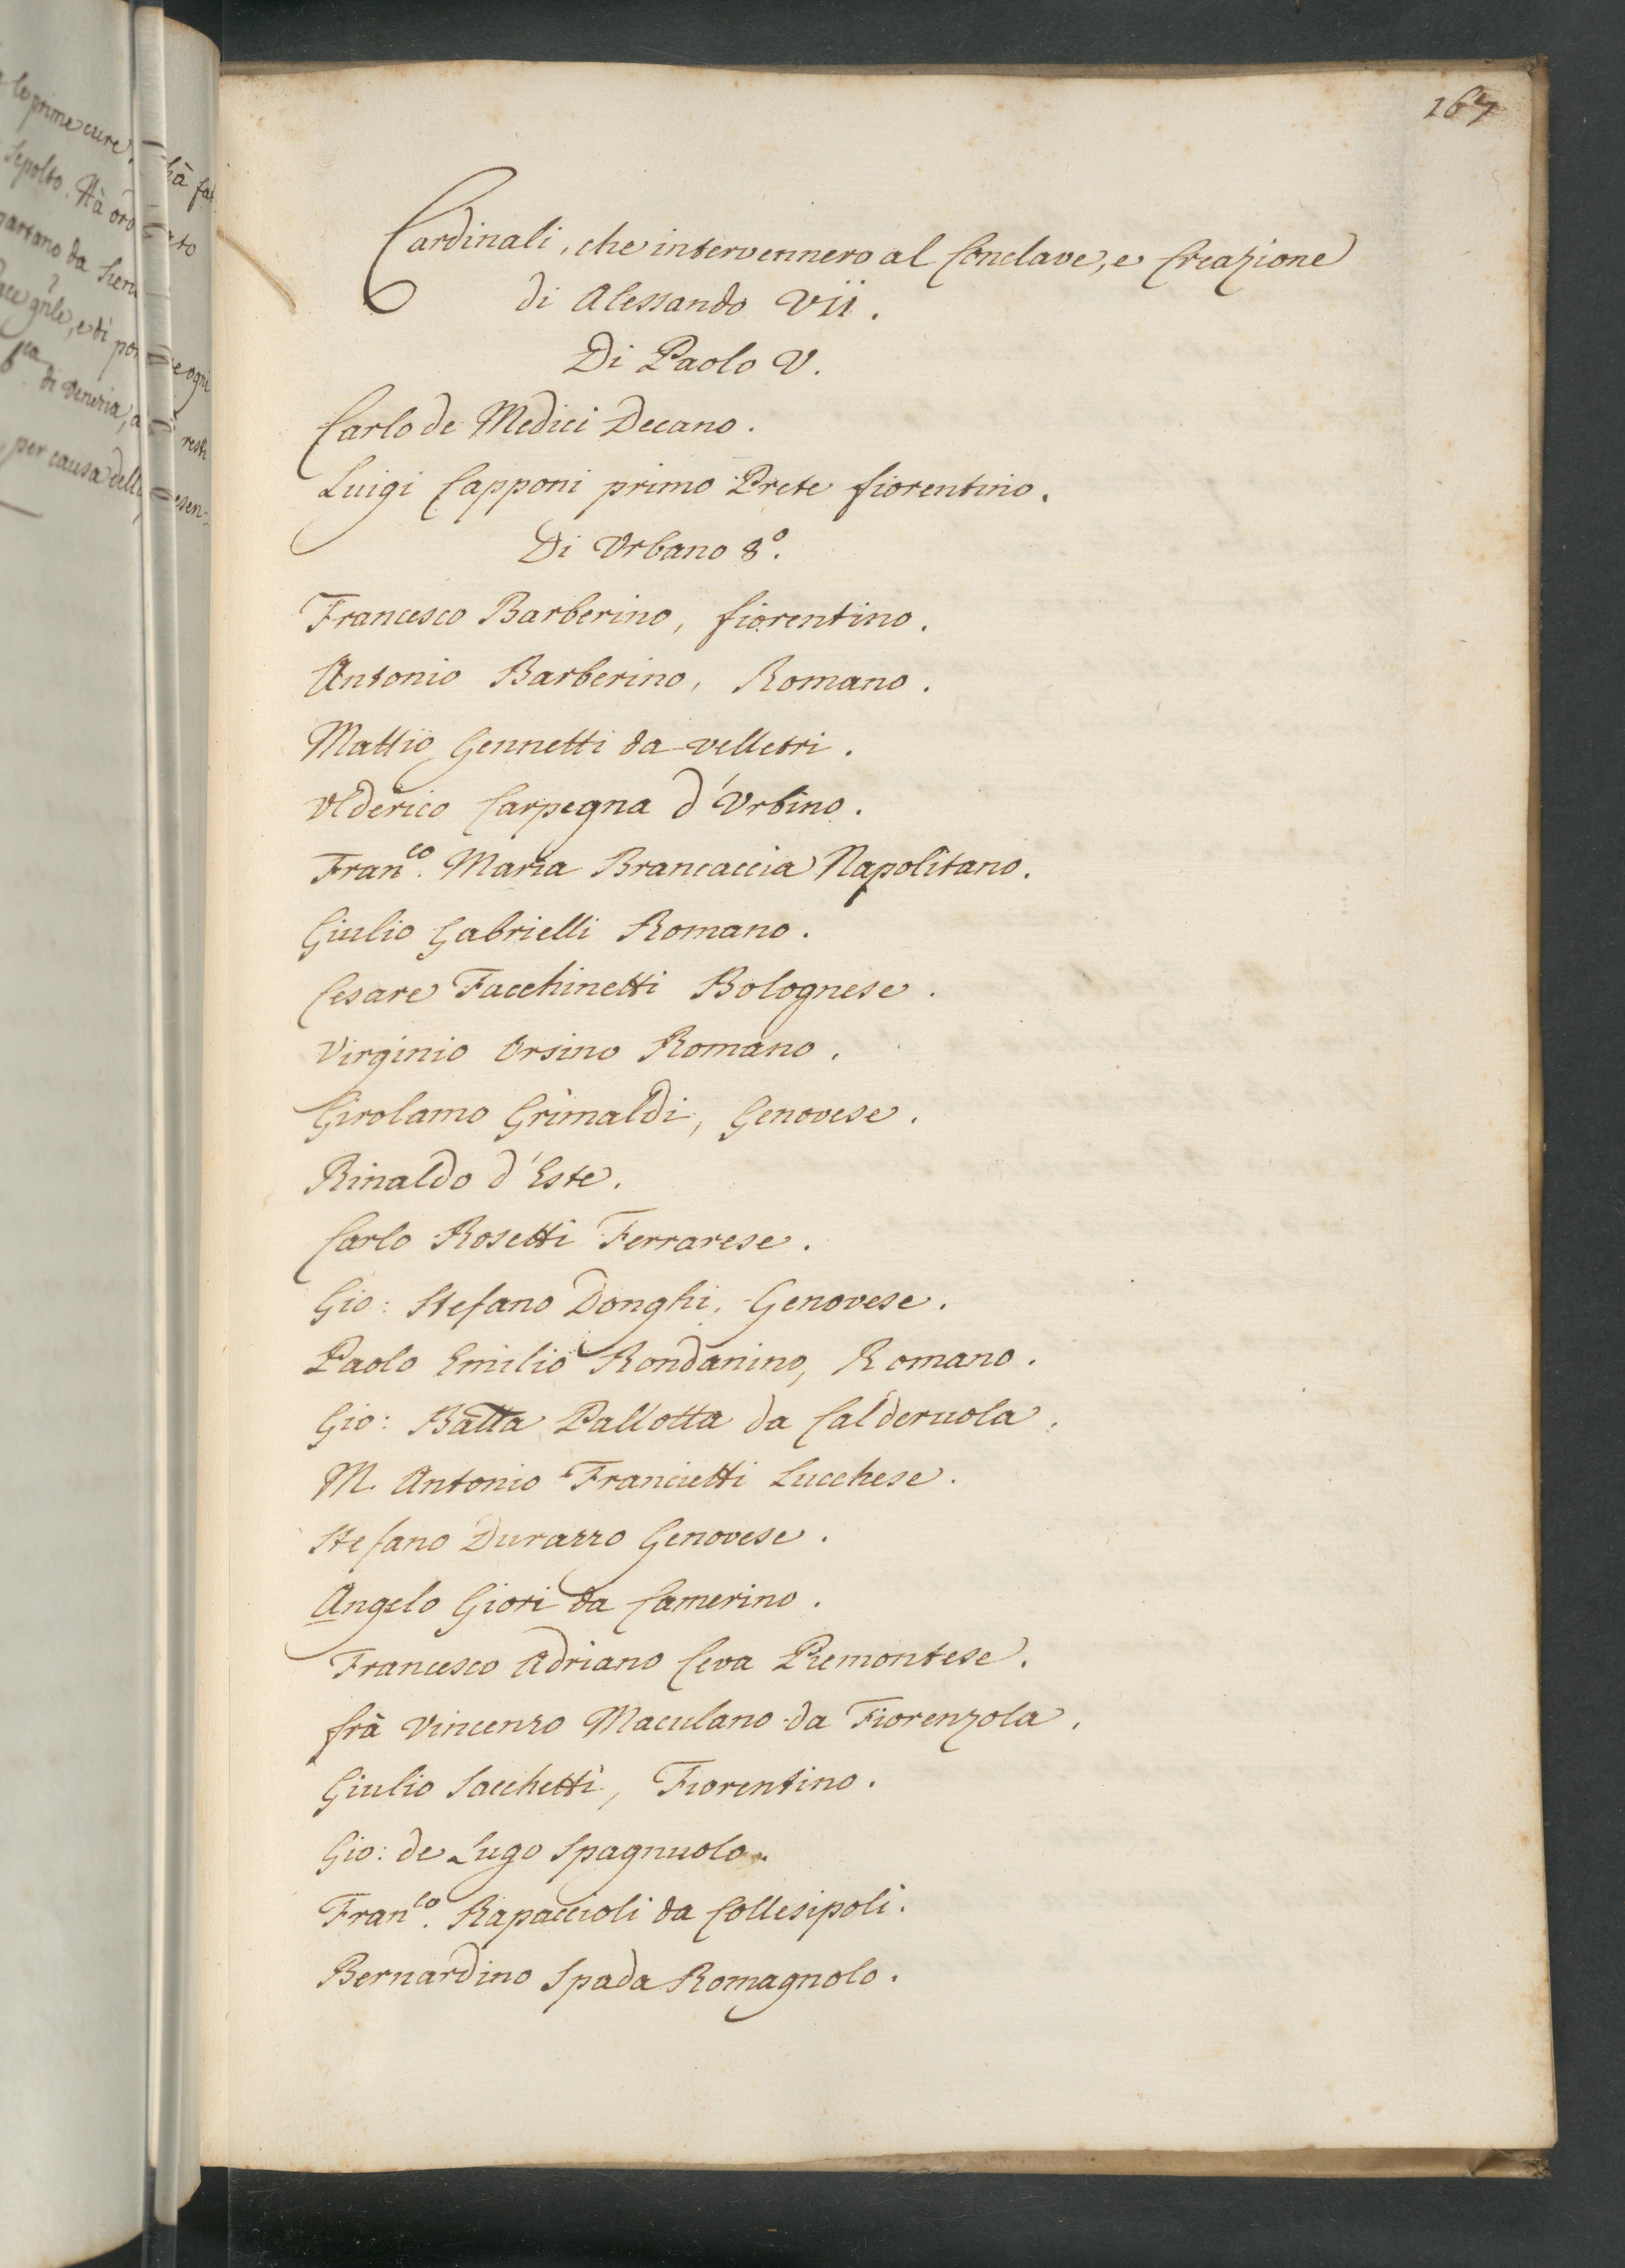 167
Cardinali, che intervennero al Conclave, e Creazione
di Alessando VII.
Di Paolo V.
Carlo de Medici Decano.
Luigi Capponi primo Prete fiorentino.
Di Vrbano 8º.
Francesco Barberino, fiorentino.
Antonio Barberino, Romano.
Mattio Gennetti da velletri.
Vlderico Carpegna d'Vrbino.
Franco. Maria Brancaccia Napolitano.
Giulio Gabrielli Romano.
Cesare Facchinetti Bolognese.
Virginio Orsino Romano.
Girolamo Grimaldi, Genovese.
Rinaldo d'Este.
Carlo Rosetti Ferrarese.
Gio: Stefano Donghi, Genovese.
Paolo Emilio Rondanino, Romano.
Gio: Batta Pallotta da Calderuola.
M. Antonio Francietti Lucchese.
Stefano Durazzo Genovese.
Angelo Giori da Camerino.
Francesco Adriano Ceva Piemontese.
frà Vincenzo Maculano da Fiorenzola.
Giulio Sacchetti, Fiorentino.
Gio: de Lugo Spagnuolo.
Franco. Rapaccioli da Collesipoli.
Bernardino Spada Romagnolo.